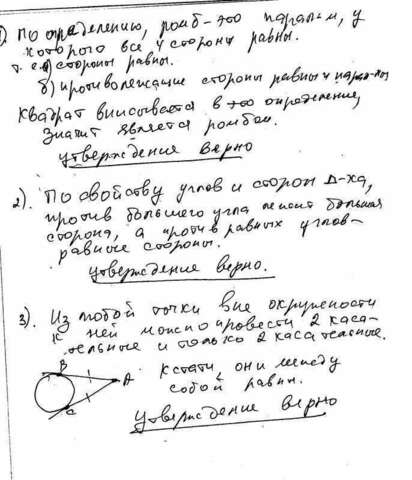 1) По определению, ромб - это парал-м, у
которого все 4 стороны равны.
т. е. а) стороны равны.
б) противолежащие стороны равны и парал-ны
Квадрат вписывается в это определение,
значит является ромбом.
утверждение верно
2). По свойству углов и сторон Δ-ка,
против большего угла лежит большая
сторона, а против равных углов-
равные стороны.
утверждение верно.
3). Из любой точки вне окружности
к ней можно провести 2 каса-
тельные и только 2 касательные.
B
A
C
кстати, они между
собой равны.
утверждение верно